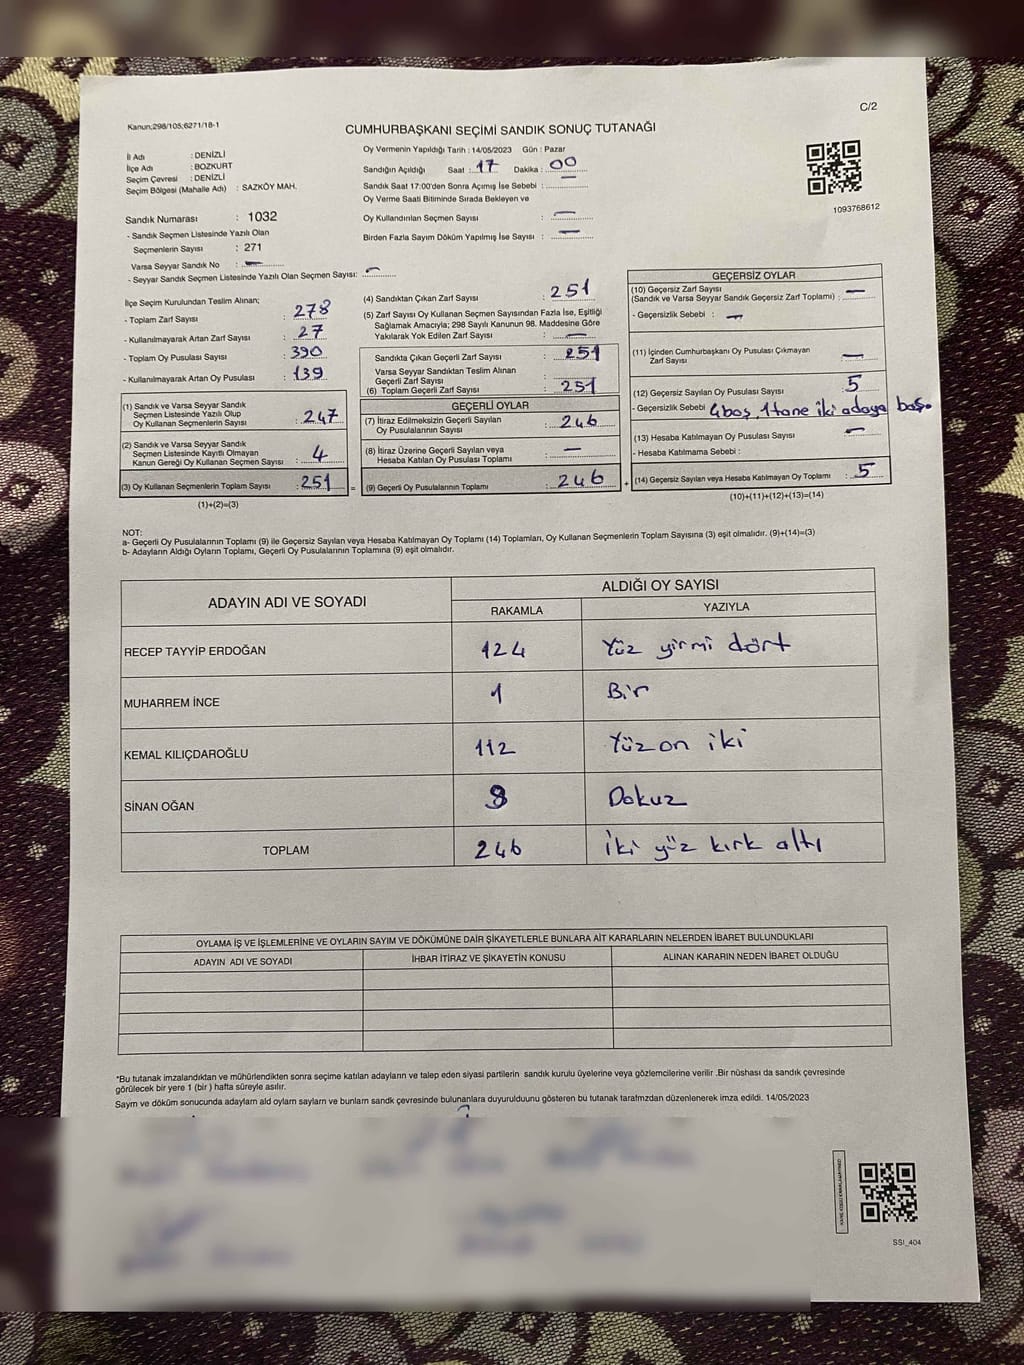 C/2
Kanun;298/105;6271/18-1
CUMHURBAŞKANI SEÇİMİ SANDIK SONUÇ TUTANAĞI
İl Adı : DENİZLİ
İlçe Adı : BOZKURT
Seçim Çevresi : DENİZLİ
Seçim Bölgesi (Mahalle Adı) : SAZKÖY MAH.
Sandık Numarası : 1032
- Sandık Seçmen Listesinde Yazılı Olan
Seçmenlerin Sayısı : 271
Varsa Seyyar Sandık No : —
- Seyyar Sandık Seçmen Listesinde Yazılı Olan Seçmen Sayısı: —
Oy Vermenin Yapıldığı Tarih : 14/05/2023 Gün : Pazar
Sandığın Açıldığı Saat : 17 Dakika : 00
Sandık Saat 17:00'den Sonra Açımış İse Sebebi : —
Oy Verme Saati Bitiminde Sırada Bekleyen ve
Oy Kullandırılan Seçmen Sayısı : —
Birden Fazla Sayım Döküm Yapılmış İse Sayısı : —
1093768612
İlçe Seçim Kurulundan Teslim Alınan;
- Toplam Zarf Sayısı : 278
- Kullanılmayarak Artan Zarf Sayısı : 27
- Toplam Oy Pusulası Sayısı : 390
- Kullanılmayarak Artan Oy Pusulası : 139
(1) Sandık ve Varsa Seyyar Sandık
Seçmen Listesinde Yazılı Olup
Oy Kullanan Seçmenlerin Sayısı : 247
(2) Sandık ve Varsa Seyyar Sandık
Seçmen Listesinde Kayıtlı Olmayan
Kanun Gereği Oy Kullanan Seçmen Sayısı : 4
(3) Oy Kullanan Seçmenlerin Toplam Sayısı : 251 =
(1)+(2)=(3)
(4) Sandıktan Çıkan Zarf Sayısı : 251
(5) Zarf Sayısı Oy Kullanan Seçmen Sayısından Fazla İse, Eşitliği
Sağlamak Amacıyla; 298 Sayılı Kanunun 98. Maddesine Göre
Yakılarak Yok Edilen Zarf Sayısı : —
Sandıkta Çıkan Geçerli Zarf Sayısı : 251
Varsa Seyyar Sandıktan Teslim Alınan
Geçerli Zarf Sayısı :
(6) Toplam Geçerli Zarf Sayısı : 251
GEÇERLİ OYLAR
(7) İtiraz Edilmeksizin Geçerli Sayılan
Oy Pusulalarının Sayısı : 246
(8) İtiraz Üzerine Geçerli Sayılan veya
Hesaba Katılan Oy Pusulası Toplamı : —
(9) Geçerli Oy Pusulalarının Toplamı : 246 +
GEÇERSİZ OYLAR
(10) Geçersiz Zarf Sayısı
(Sandık ve Varsa Seyyar Sandık Geçersiz Zarf Toplamı) : —
- Geçersizlik Sebebi : —
(11) İçinden Cumhurbaşkanı Oy Pusulası Çıkmayan
Zarf Sayısı : —
(12) Geçersiz Sayılan Oy Pusulası Sayısı : 5
- Geçersizlik Sebebi 4 boş 1 tane iki adaya
(13) Hesaba Katılmayan Oy Pusulası Sayısı : —
- Hesaba Katılmama Sebebi :
(14) Geçersiz Sayılan veya Hesaba Katılmayan Oy Toplamı : 5
(10)+(11)+(12)+(13)=(14)
NOT:
a- Geçerli Oy Pusulalarının Toplamı (9) ile Geçersiz Sayılan veya Hesaba Katılmayan Oy Toplamı (14) Toplamları, Oy Kullanan Seçmenlerin Toplam Sayısına (3) eşit olmalıdır. (9)+(14)=(3)
b- Adayların Aldığı Oyların Toplamı, Geçerli Oy Pusulalarının Toplamına (9) eşit olmalıdır.
ADAYIN ADI VE SOYADI
ALDIĞI OY SAYISI
RAKAMLA YAZIYLA
RECEP TAYYİP ERDOĞAN 124 Yüz yirmi dört
MUHARREM İNCE 1 Bir
KEMAL KILIÇDAROĞLU 112 Yüz on iki
SİNAN OĞAN 9 Dokuz
TOPLAM 246 İki yüz kırk altı
OYLAMA İŞ VE İŞLEMLERİNE VE OYLARIN SAYIM VE DÖKÜMÜNE DAİR ŞİKAYETLERLE BUNLARA AİT KARARLARIN NELERDEN İBARET BULUNDUKLARI
ADAYIN ADI VE SOYADI İHBAR İTİRAZ VE ŞİKAYETİN KONUSU ALINAN KARARIN NEDEN İBARET OLDUĞU
*Bu tutanak imzalandıktan ve mühürlendikten sonra seçime katılan adayların ve talep eden siyasi partilerin sandık kurulu üyelerine veya gözlemcilerine verilir .Bir nüshası da sandık çevresinde
görülecek bir yere 1 (bir ) hafta süreyle asılır.
Saym ve döküm sonucunda adaylarn ald oylarn saylarn ve bunlarn sandk çevresinde bulunanlara duyurulduunu gösteren bu tutanak tarafmzdan düzenlenerek imza edildi. 14/05/2023
SSI_404